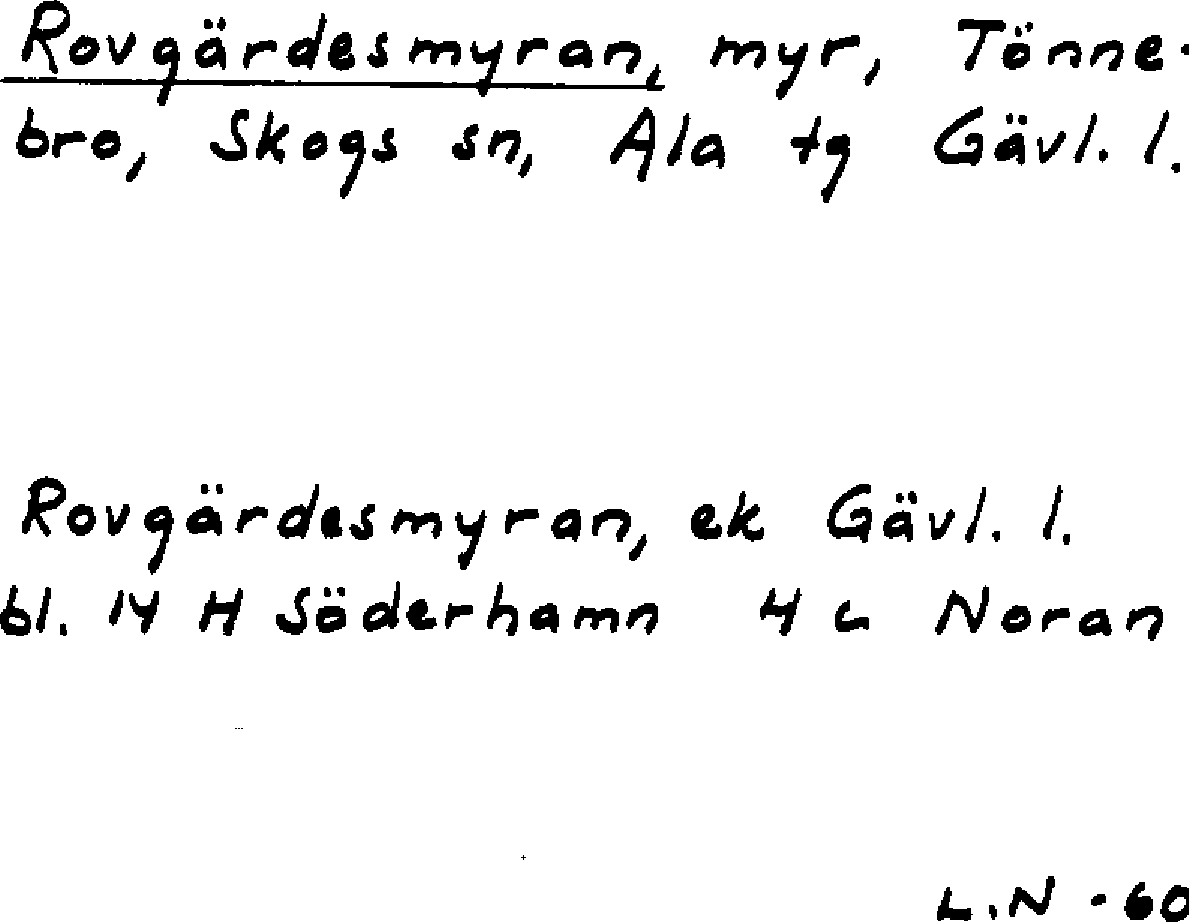 Rovgärdesmyran, myr, Tönne-
bro, Skogs sn, Ala tg Gävl. l.
Rovgärdesmyran, ek Gävl. l.
bl. 14 H Söderhamn 4 c Noran
L.N -60